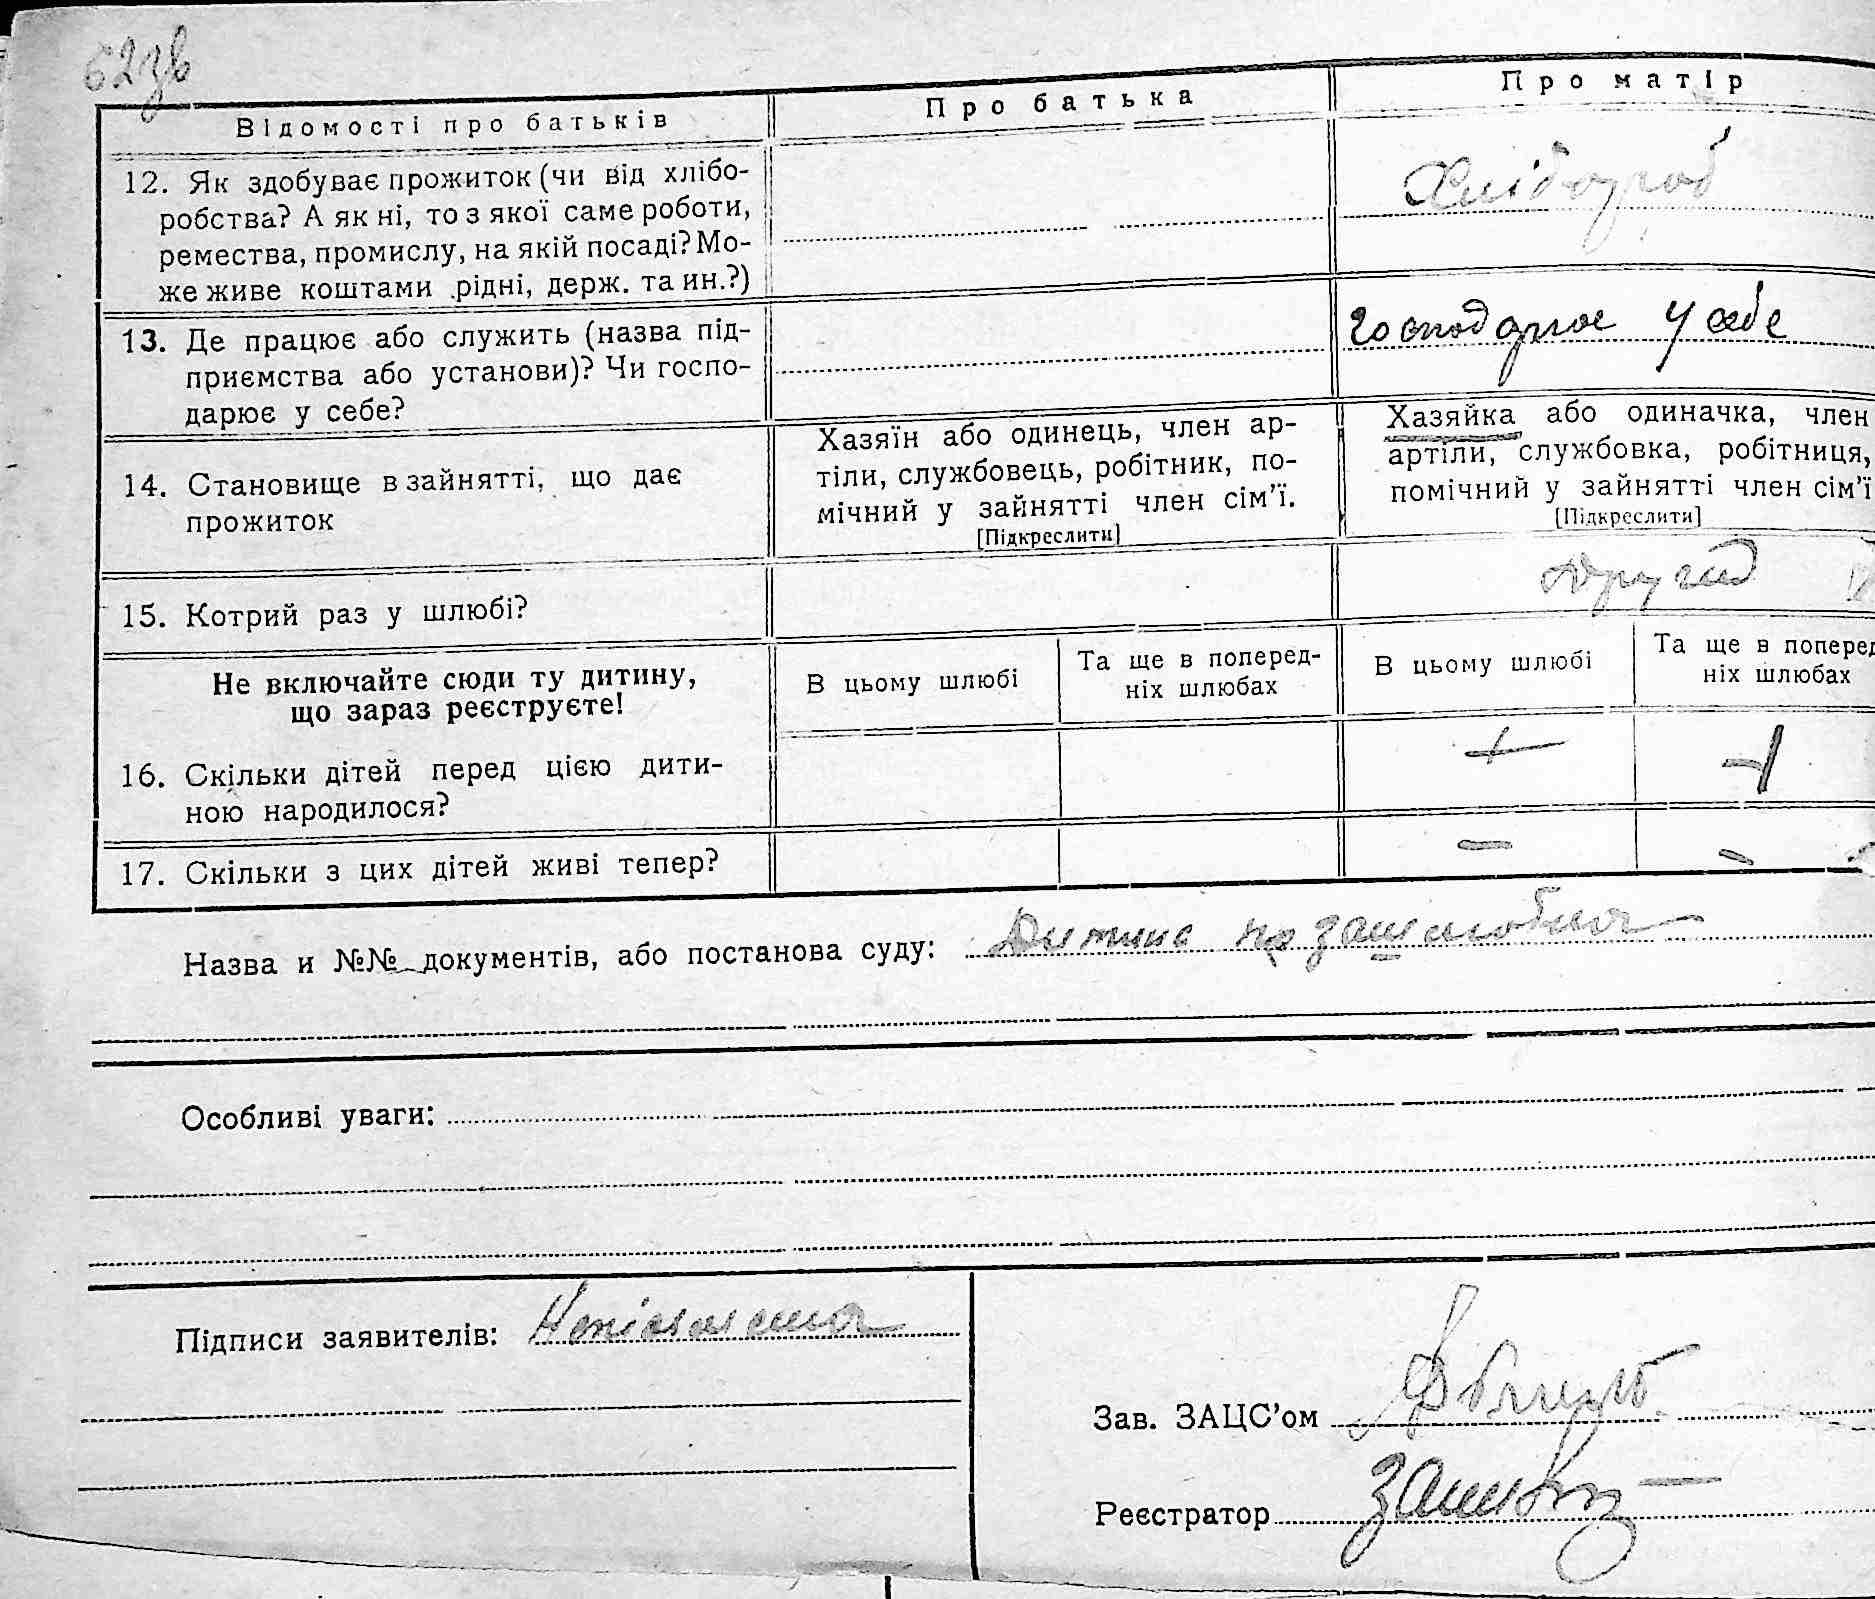 62зв
Відомості про батьків
Про батька
Про матір
12. Як здобуває прожиток (чи від хлібо-
робства? А як ні, то з якої саме роботи,
ремества, промислу, на якій посаді? Мо-
же живе коштами рідні, держ. та ин.?)
Хлібороб
13. Де працює або служить (назва під-
приємства або установи)? Чи госпо-
дарює у себе?
господарює у себе
14. Становище в зайнятті, що дає
прожиток
Хазяїн або одинець, член ар-
тіли, службовець, робітник, по-
мічний у зайнятті член сім’ї.
[Підкреслити]
Хазяйка або одиначка, член
артіли, службовка, робітниця,
помічний у зайнятті член сім’ї
[Підкреслити]
15. Котрий раз у шлюбі?
другий
Не включайте сюди ту дитину,
що зараз реєструєте!
В цьому шлюбі
Та ще в поперед-
ніх шлюбах
В цьому шлюбі
Та ще в поперед
ніх шлюбах
16. Скільки дітей перед цією дити-
ною народилося?
17. Скільки з цих дітей живі тепер?
–
–
Назва и №№ документів, або постанова суду: Дитина позашлюбна
Особливі уваги:
Підписи заявителів: Неписьменна
Зав. ЗАЦС’ом
Реєстратор